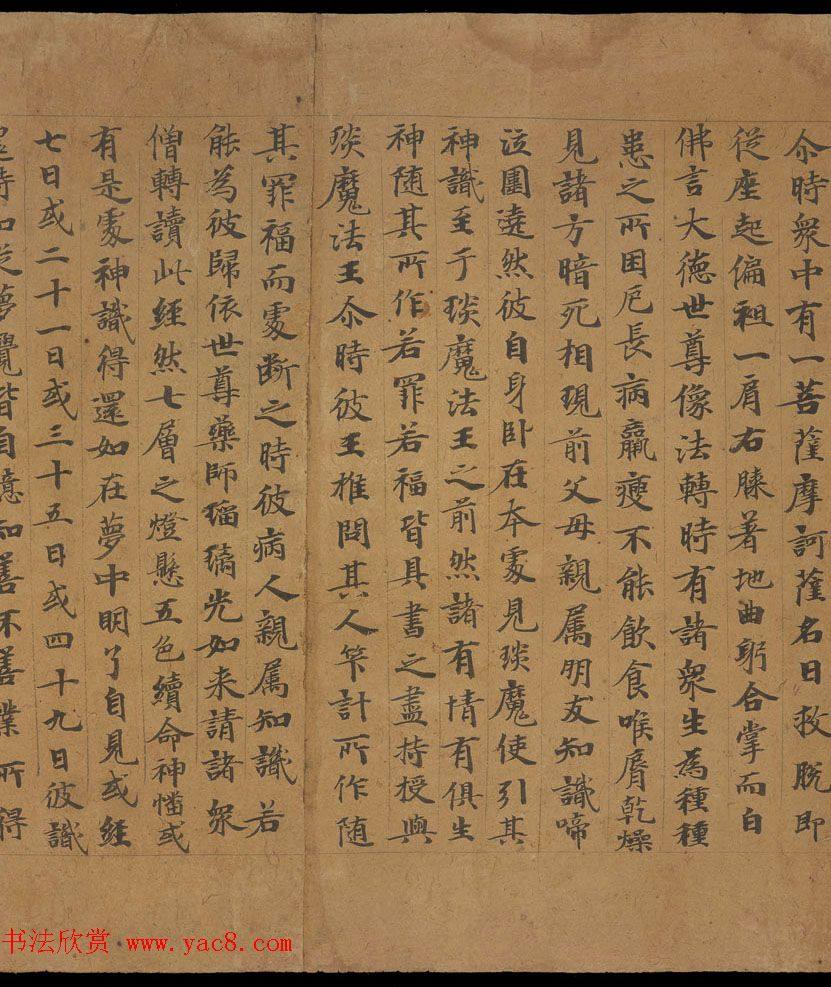 尒時衆中有一菩薩摩訶薩名曰救脫即
從座起偏袒一肩右膝著地曲躬合掌而白
佛言大德世尊像法轉時有諸衆生為種種
患之所困厄長病羸瘦不能飲食喉脣乾燥
見諸方暗死相現前父母親属朋友知識啼
泣圍遶然彼自身卧在本處見琰魔使引其
神識至于琰魔法王之前然諸有情有俱生
神随其所作若罪若福皆具書之盡持授與
琰魔法王尒時彼王推問其人筭計所作随
其罪福而處断之時彼病人親属知識若
能為彼歸依世尊藥師瑠璃光如来請諸衆
僧轉讀此經然七層之燈懸五色續命神幡或
有是處神識得還如在夢中明了自見或經
七日或二十一日或三十五日或四十九日彼識
還時如從夢覺皆自憶知善不善業所得
书法欣赏 www.yac8.com